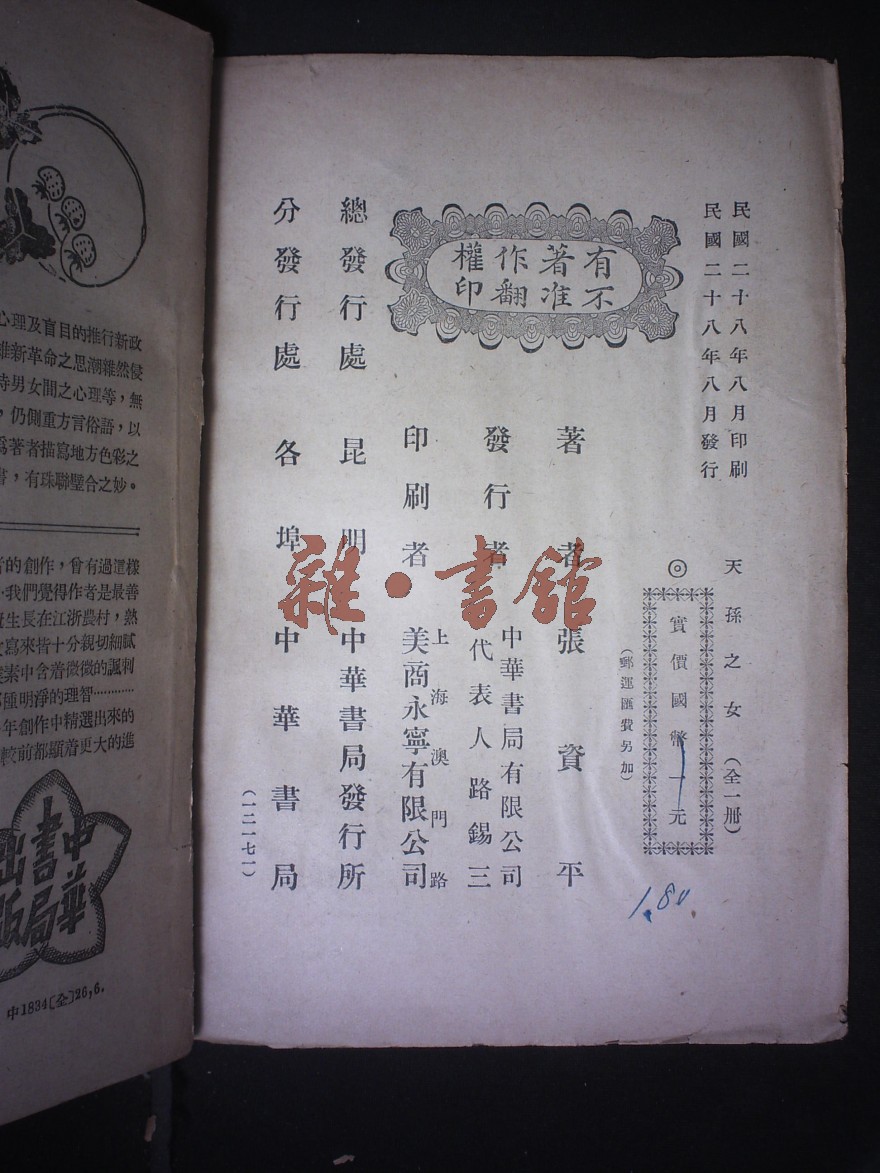 民國二十八年八月印刷
民國二十八年八月發行
天孫之女（全一冊）
◎
實價國幣一元
（郵運匯費另加）
1.80
有著作權
不准翻印
著者 張資平
發行者 中華書局有限公司
代表人路錫三
印刷者 上海澳門路
美商永寧有限公司
總發行處 昆明 中華書局發行所
分發行處 各埠 中華書局
（一二一七一）
雜·書館
心理及盲目的推行新政
維新革命之思潮雖然侵
時男女間之心理等，無
，仍側重方言俗語，以
爲著者描寫地方色彩之
書，有珠聯璧合之妙。
的創作，曾有過這樣
我們覺得作者是最善
生長在江浙農村，熱
寫來皆十分親切細膩
素中含着微微的諷刺
種明淨的理智…………
年創作中精選出來的
較前都顯着更大的進
中華書局
中1834〔全〕26,6.